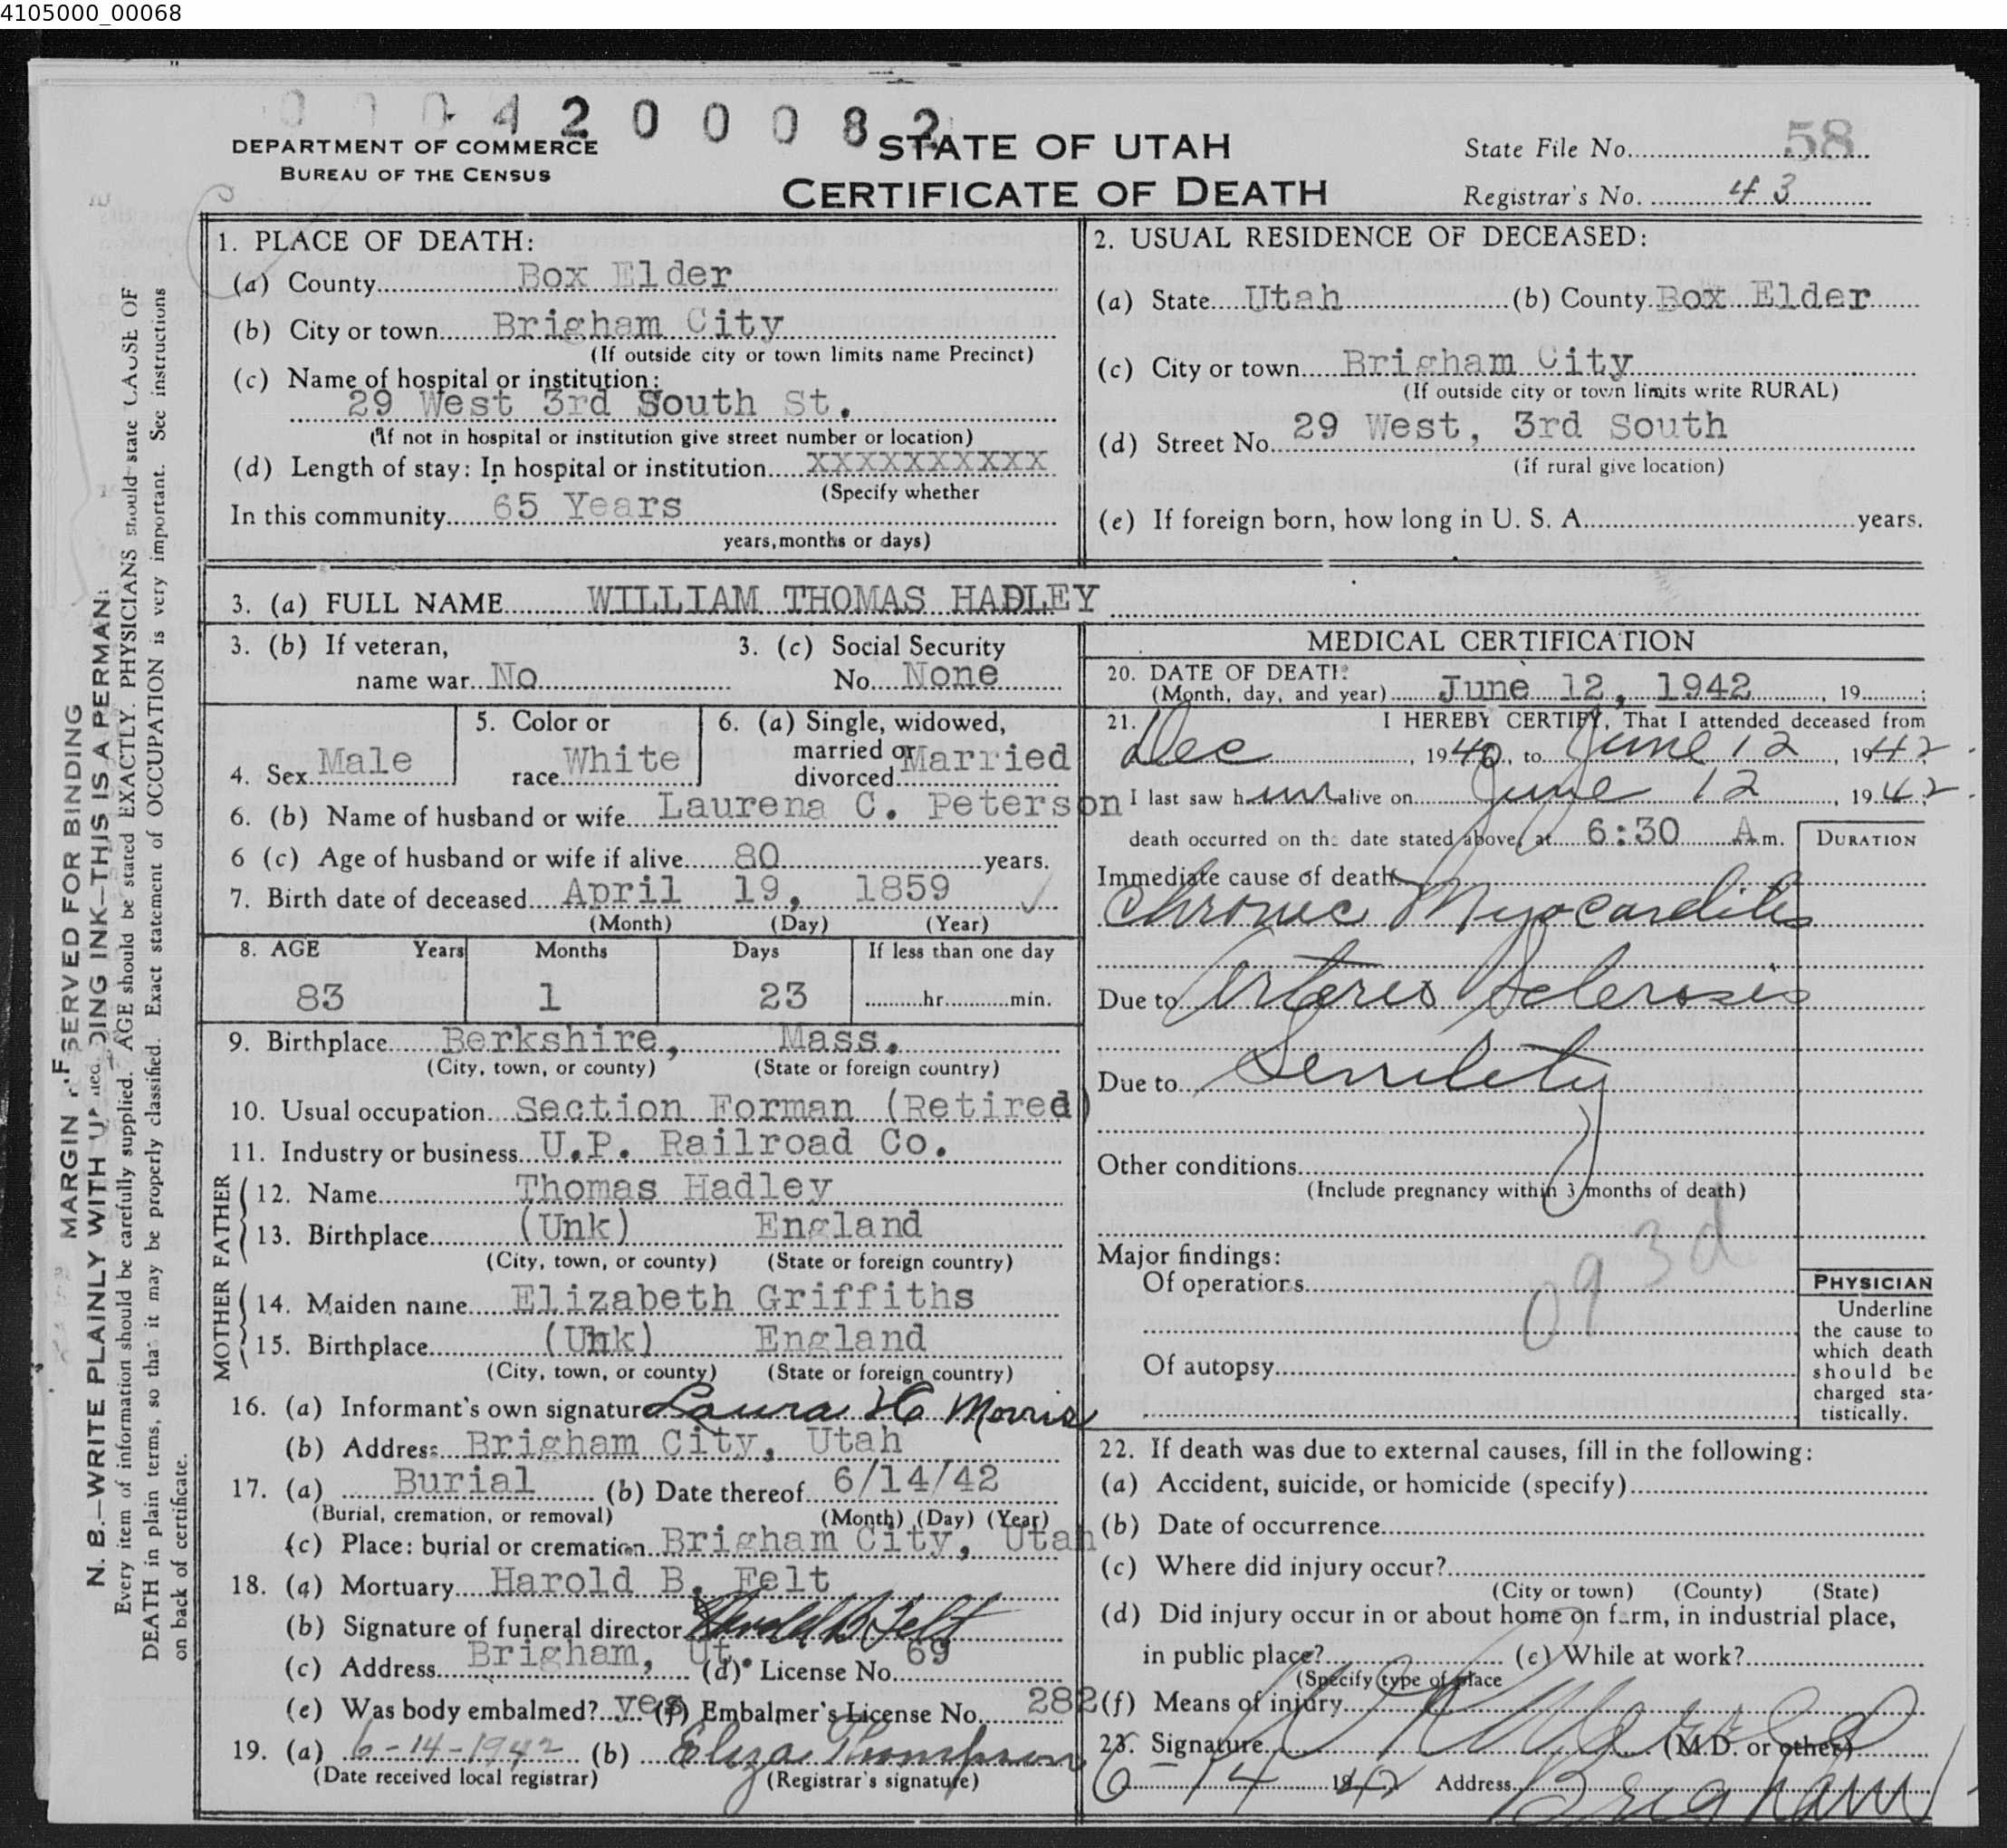 4105000_00068
0 0 0 4 2 0 0 0 8 2
DEPARTMENT OF COMMERCE
BUREAU OF THE CENSUS
STATE OF UTAH
CERTIFICATE OF DEATH
State File No. 58
Registrar's No. 43
MARGIN SERVED FOR BINDING
N. B.—WRITE PLAINLY WITH DING INK—THIS IS A PERMAN
Every item of information should be carefully supplied. AGE should be stated EXACTLY. PHYSICIANS should state CAUSE OF
DEATH in plain terms, so that it may be properly classified. Exact statement of OCCUPATION is very important. See instructions
on back of certificate.
1. PLACE OF DEATH:
(a) County Box Elder
(b) City or town Brigham City
(If outside city or town limits name Precinct)
(c) Name of hospital or institution:
29 West 3rd South St.
(If not in hospital or institution give street number or location)
(d) Length of stay: In hospital or institution XXXXXXXXXX
(Specify whether
In this community 65 Years
years, months or days)
2. USUAL RESIDENCE OF DECEASED:
(a) State Utah (b) County Box Elder
(c) City or town Brigham City
(If outside city or town limits write RURAL)
(d) Street No. 29 West, 3rd South
(if rural give location)
(e) If foreign born, how long in U. S. A. years.
3. (a) FULL NAME WILLIAM THOMAS HADLEY
3. (b) If veteran,
name war No
3. (c) Social Security
No. None
4. Sex Male
5. Color or
race White
6. (a) Single, widowed,
married or
divorced Married
6. (b) Name of husband or wife Laurena C. Peterson
6 (c) Age of husband or wife if alive 80 years.
7. Birth date of deceased April 19, 1859
(Month) (Day) (Year)
8. AGE Years Months Days If less than one day
83 1 23 hr. min.
9. Birthplace Berkshire, Mass.
(City, town, or county) (State or foreign country)
10. Usual occupation Section Forman (Retired)
11. Industry or business U.P. Railroad Co.
FATHER
12. Name Thomas Hadley
13. Birthplace (Unk) England
(City, town, or county) (State or foreign country)
MOTHER
14. Maiden name Elizabeth Griffiths
15. Birthplace (Unk) England
(City, town, or county) (State or foreign country)
16. (a) Informant's own signature Laura H Morris
(b) Address Brigham City, Utah
17. (a) Burial (b) Date thereof 6/14/42
(Burial, cremation, or removal) (Month) (Day) (Year)
(c) Place: burial or cremation Brigham City, Utah
18. (a) Mortuary Harold B. Felt
(b) Signature of funeral director Harold B Felt
(c) Address Brigham, Ut. (d) License No. 69
(e) Was body embalmed? yes (f) Embalmer's License No. 282
19. (a) 6-14-1942 (b) Eliza Thompson
(Date received local registrar) (Registrar's signature)
MEDICAL CERTIFICATION
20. DATE OF DEATH
(Month, day, and year) June 12, 1942, 19 ;
21. I HEREBY CERTIFY, That I attended deceased from
Dec, 1940, to June 12, 1942.
I last saw him alive on June 12, 1942.
death occurred on the date stated above, at 6:30 A m.
DURATION
Immediate cause of death
Chronic Myocarditis
Due to Arterio Sclerosis
Due to Senility
Other conditions
(Include pregnancy within 3 months of death)
093d
Major findings:
Of operations
Of autopsy
PHYSICIAN
Underline
the cause to
which death
should be
charged sta-
tistically.
22. If death was due to external causes, fill in the following:
(a) Accident, suicide, or homicide (specify)
(b) Date of occurrence
(c) Where did injury occur?
(City or town) (County) (State)
(d) Did injury occur in or about home on farm, in industrial place,
in public place? (e) While at work?
(Specify type of place
(f) Means of injury
23. Signature (M.D. or other)
6-14 1942 Address Brigham